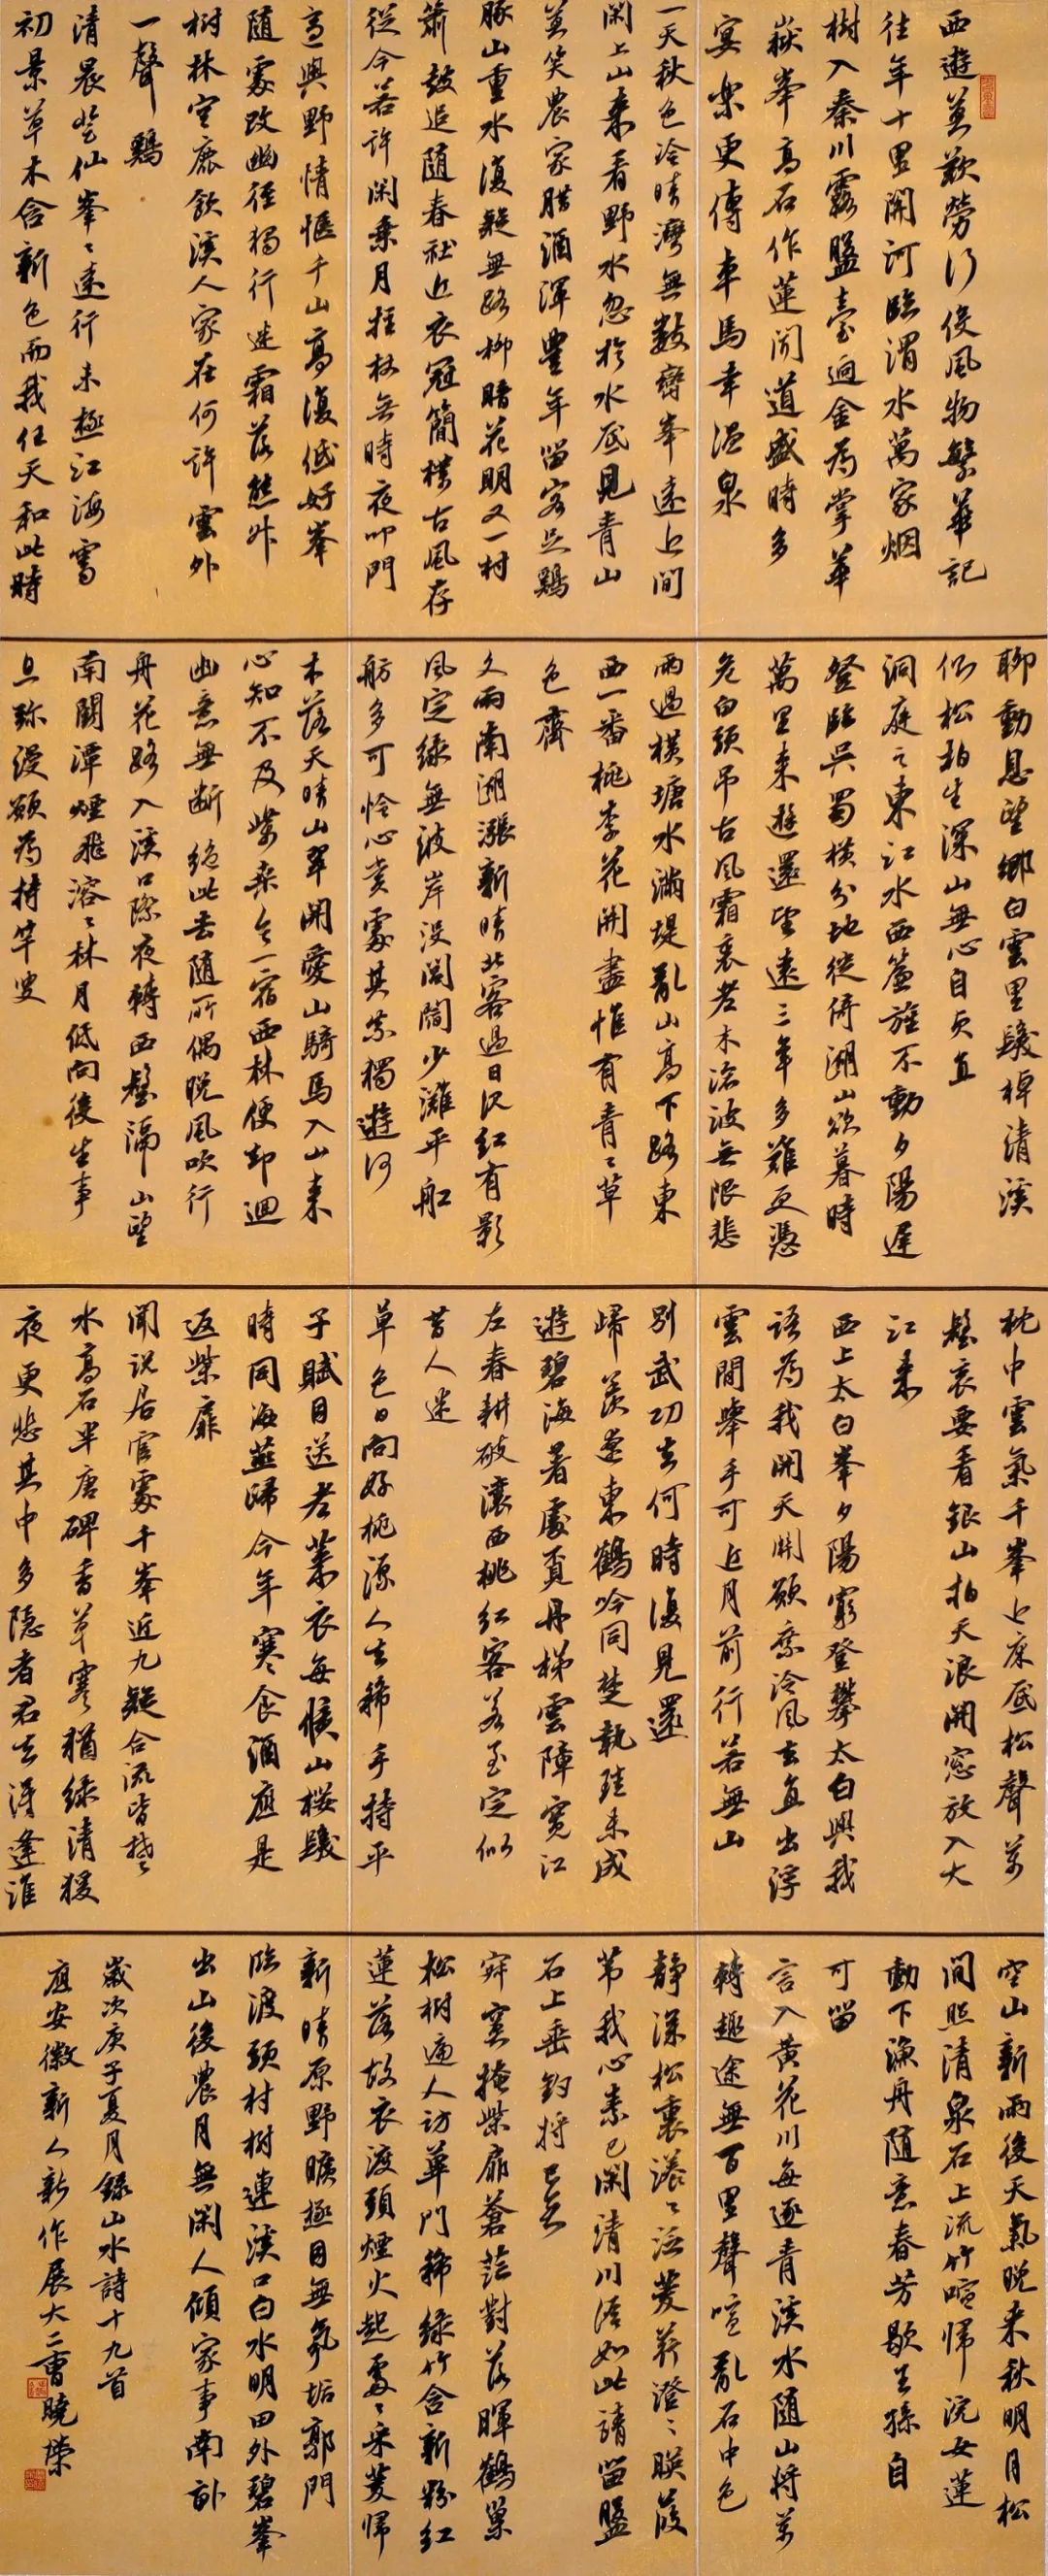 西遊莫歎勞行役風物繁華記
往年十里關河臨渭水萬家烟
樹入秦川露盤臺迥金為掌華
嶽峯高石作蓮聞道盛時多
宴樂更傳車馬幸温泉
一天秋色冷晴灣無數巒峯遠近間
閑上山來看野水忽於水底見青山
莫笑農家腊酒渾豐年留客足鷄
豚山重水復疑無路柳暗花明又一村
簫鼓追隨春社近衣冠簡樸古風存
從今若許閑乘月拄杖無時夜叩門
適與野情愜千山高復低好峯
隨處改幽徑獨行迷霜落熊升
樹林空鹿飲溪人家在何許雲外
一聲鷄
清晨登仙峯々遠行未極江海霽
初景草木含新色而我任天和此時
聊動息望鄉白雲里發棹清溪
側松柏生深山無心自貞直
洞庭之東江水西簾旌不動夕陽遲
登臨吳蜀橫分地徙倚湖山欲暮時
萬里來遊還望遠三年多難更憑
危白頭弔古風霜裏老木滄波無限悲
雨過橫塘水滿堤亂山高下路東
西一番桃李花開盡惟有青々草
色齊
久雨南湖漲新晴北客過日沉紅有影
風定綠無波岸没閭閻少灘平船
舫多可憐心賞處其奈獨遊何
木落天晴山翠開愛山騎馬入山來
心知不及柴桑令一宿西林便却迴
幽意無斷絕此去隨所偶晚風吹行
舟花路入溪口際夜轉西壑隔山望
南鬭潭煙飛溶々林月低向後生事
且弥漫願為持竿叟
枕中雲氣千峯近床底松聲萬
壑哀要看銀山拍天浪開窗放入大
江來
西上太白峯夕陽窮登攀太白與我
語為我開天關願乘泠風去直出浮
雲間舉手可近月前行若無山
別武功去何時復見還
歸羨遼東鶴吟同楚執珪未成
遊碧海著處覓丹梯雲障寬江
左春耕破瀼西桃紅客若至定似
昔人迷
草色日向好桃源人去稀手持平
子賦目送老萊衣每候山櫻發
時同海燕歸今年寒食酒應是
返柴扉
聞說居官處千峯近九疑合流皆楚
水高石半唐碑香草寒猶綠清猨
夜更悲其中多隱者君去得逢誰
空山新雨後天氣晚來秋明月松
間照清泉石上流竹喧歸浣女蓮
動下漁舟隨意春芳歇王孫自
可留
言入黄花川每逐青溪水隨山將萬
轉趣途無百里聲喧亂石中色
靜深松裏漾々泛菱荇澄々映葭
葦我心素已閑清川澹如此請留盤
石上垂釣將已矣
寂寞掩柴扉蒼茫對落暉鶴巢
松樹遍人訪蓽門稀綠竹含新粉紅
蓮落故衣渡頭煙火起處々采菱歸
新晴原野曠極目無氛垢郭門
臨渡頭村樹連溪口白水明田外碧峯
出山後農月無閑人傾家事南畝
歲次庚子夏月錄山水詩十九首
應安徽新人新作展大二曹曉榮